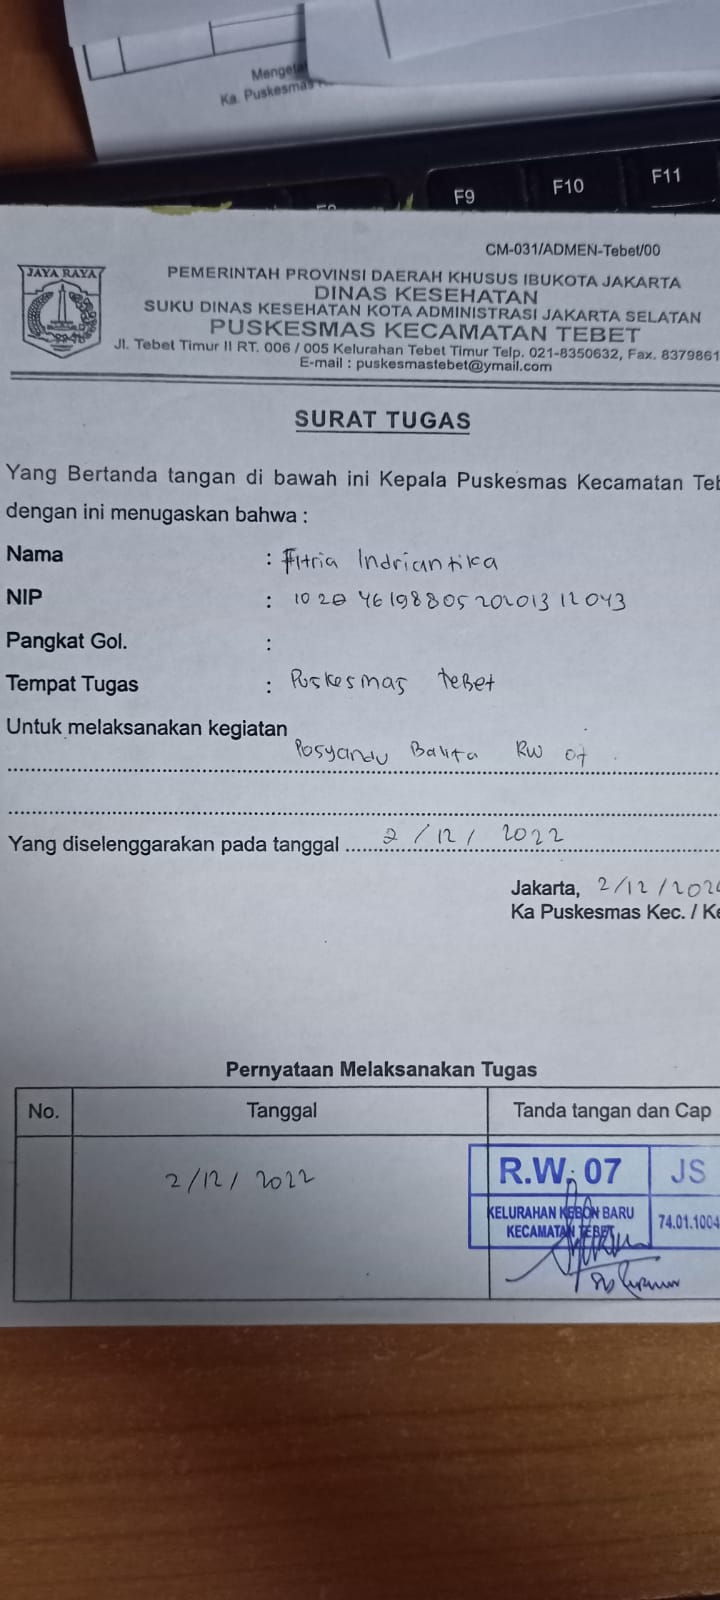 Mengeta
Ka. Puskesmas
F9
F10
F11
CM-031/ADMEN-Tebet/00
JAYA RAYA
PEMERINTAH PROVINSI DAERAH KHUSUS IBUKOTA JAKARTA
DINAS KESEHATAN
SUKU DINAS KESEHATAN KOTA ADMINISTRASI JAKARTA SELATAN
PUSKESMAS KECAMATAN TEBET
Jl. Tebet Timur II RT. 006 / 005 Kelurahan Tebet Timur Telp. 021-8350632, Fax. 8379861
E-mail : puskesmastebet@ymail.com
SURAT TUGAS
Yang Bertanda tangan di bawah ini Kepala Puskesmas Kecamatan Teb
dengan ini menugaskan bahwa :
Nama : Fitria Indriantika
NIP :
Pangkat Gol. :
Tempat Tugas : Puskesmas Tebet
Untuk melaksanakan kegiatan
Posyandu Balita RW 07
Yang diselenggarakan pada tanggal 2/12/2022
Jakarta, 2/12/202
Ka Puskesmas Kec. / Ke
Pernyataan Melaksanakan Tugas
No. Tanggal Tanda tangan dan Cap
2/12/2022
R.W. 07 JS
KELURAHAN KEBON BARU
KECAMATAN TEBET
74.01.1004